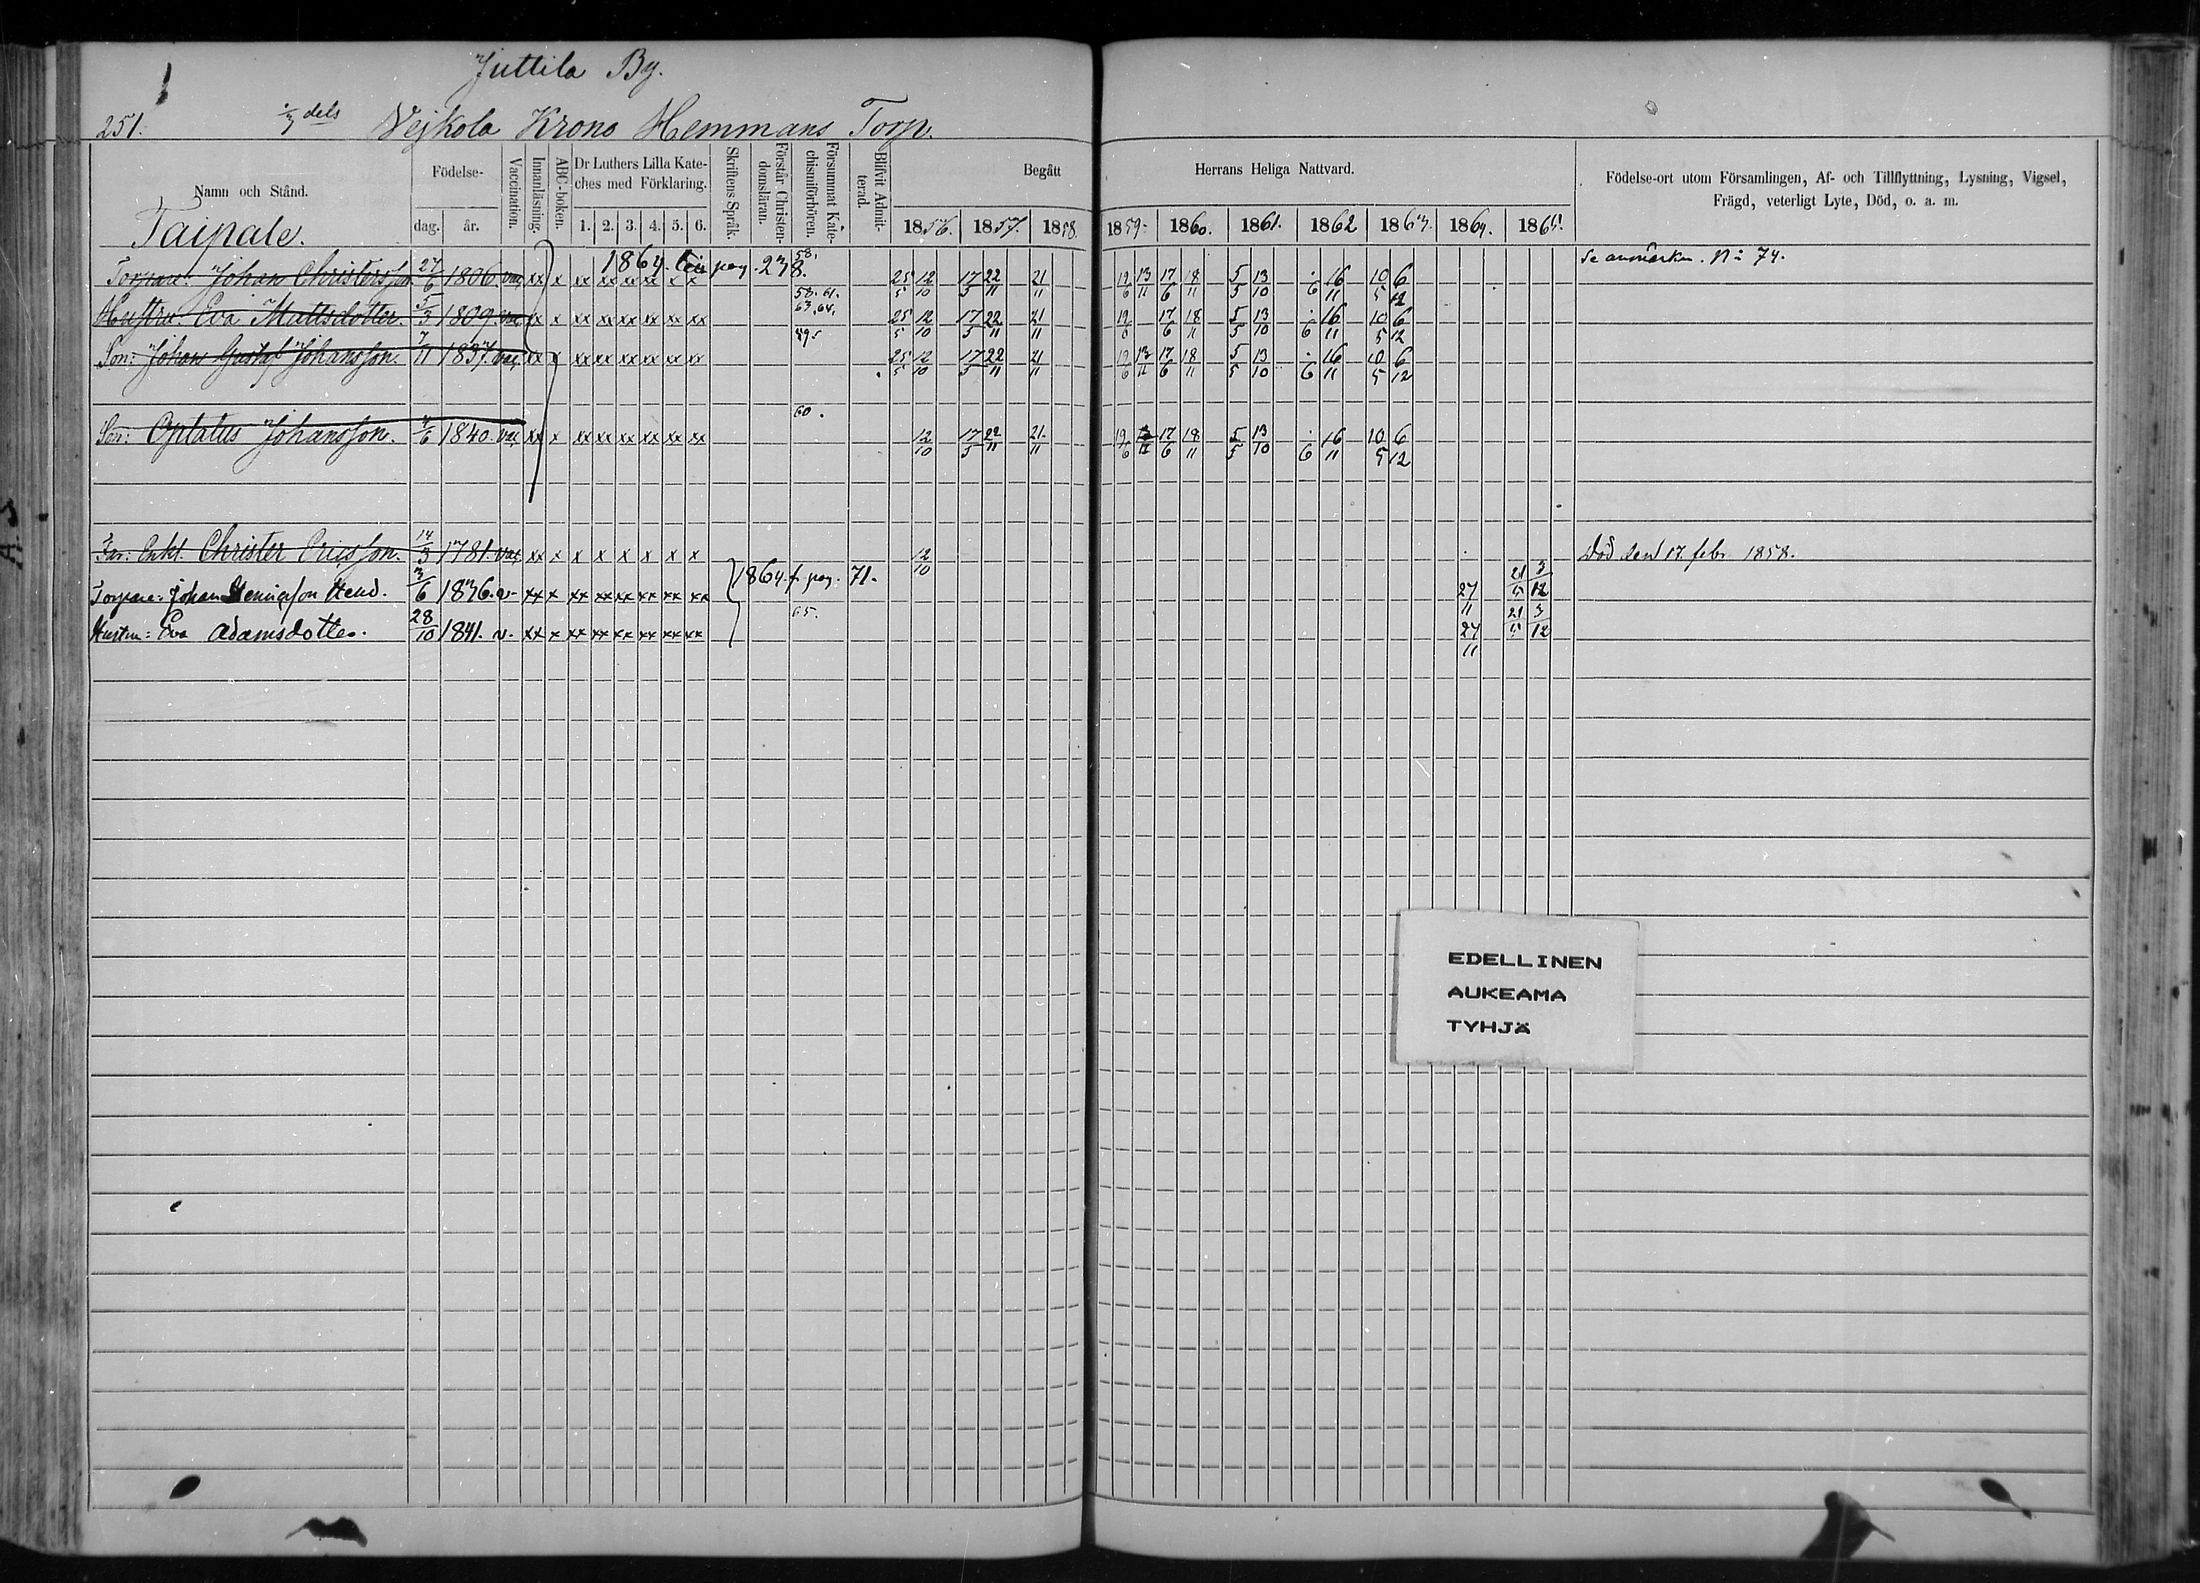 Juttila By.
251. dels Vejkola Krono Hemmans Torp.
Namn och Stånd. Födelse- dag. år. Vaccination. Innanläsning. ABC-boken. Dr Luthers Lilla Kate-ches med Förklaring. 1. 2. 3. 4. 5. 6. Skriftens Språk. Förstår Christen-domsläran. Försummat Kate-chismiförhören. Blifvit Admit-terad. Begått Herrans Heliga Nattvard. 1856. 1857. 1858. 1859. 1860. 1861. 1862 1863. 1864. 1865. Födelse-ort utom Församlingen, Af- och Tillflyttning, Lysning, Vigsel, Frägd, veterligt Lyte, Död, o. a. m.
Taipale.
1864. till pag. 238. 58.
Torpare: Johan Christersson 27/6 1806. vac. xx x x xx xx xx x x 25/5 12/10 17/5 22/11 21/11 19/6 13/11 17/6 18/11 5/5 13/10 6 16/11 10/5 6/12 Se anmärkn. No 74.
58. 61. 63. 64.
Hustru: Eva Mattsdotter. 5/3 1809. vac. x x xx xx xx xx xx xx 25/5 12/10 17/5 22/11 21/11 19/6 17/6 18/11 5/5 13/10 6 16/11 10/5 6/12
Son: Johan Gustaf Johansson. 7/11 1837. vac. xx x xx xx xx xx xx xx 25/5 12/10 17/5 22/11 21/11 19/6 13/11 17/6 18/11 5/5 13/10 6 16/11 10/5 6/12
60.
Son: Optatus Johansson. 1840. vac. xx x xx xx xx xx xx xx 12/10 17/5 22/11 21/11 19/6 13/11 17/6 18/11 5/5 13/10 6 16/11 10/5 6/12
Far: Enkl. Christer Ericsson. 14/3 1781. vac. xx x x x x x x x 12/10 Död den 17. febr 1858.
1864. fr. pag. 71.
Torpare: Johan Henricsson Hend. 3/6 1836. v. xx x xx xx xx xx xx xx 27/11 21/5 3/12
65.
Hustru: Eva Adamsdotter. 28/10 1841. v. xx x xx xx xx xx xx xx 27/11 21/5 3/12
EDELLINEN
AUKEAMA
TYHJÄ